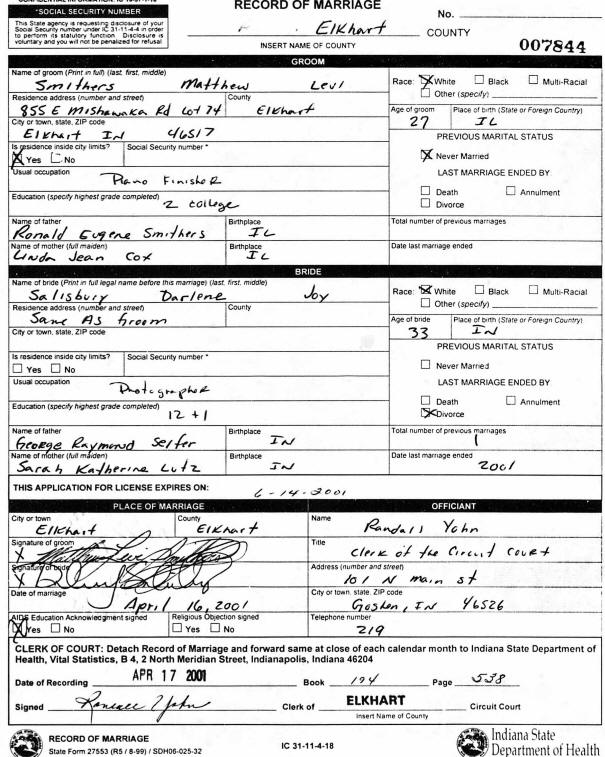 CONFIDENTIAL INFORMATION
*SOCIAL SECURITY NUMBER
This State agency is requesting disclosure of your
Social Security number under IC 31-11-4-4 in order
to perform its statutory function. Disclosure is
voluntary and you will not be penalized for refusal
RECORD OF MARRIAGE
No.
Elkhart COUNTY
INSERT NAME OF COUNTY
007844
GROOM
Name of groom (Print in full) (last, first, middle)
Smithers Matthew Levi
Race: White Black Multi-Racial
Other (specify)
Residence address (number and street) County
855 E Mishawaka Rd Lot 74 Elkhart
Age of groom Place of birth (State or Foreign Country)
27 IL
City or town, state, ZIP code
Elkhart IN 46517
PREVIOUS MARITAL STATUS
Is residence inside city limits? Social Security number *
Yes No
Never Married
LAST MARRIAGE ENDED BY
Usual occupation
Piano Finisher
Death Annulment
Divorce
Education (specify highest grade completed)
2 college
Name of father Birthplace
Ronald Eugene Smithers IL
Total number of previous marriages
Name of mother (full maiden) Birthplace
Linda Jean Cox IL
Date last marriage ended
BRIDE
Name of bride (Print in full legal name before this marriage) (last, first, middle)
Salisbury Darlene Joy
Race: White Black Multi-Racial
Other (specify)
Residence address (number and street) County
Same As Groom
Age of bride Place of birth (State or Foreign Country)
33 IN
City or town, state, ZIP code
PREVIOUS MARITAL STATUS
Is residence inside city limits? Social Security number *
Yes No
Never Married
LAST MARRIAGE ENDED BY
Usual occupation
Photographer
Death Annulment
Divorce
Education (specify highest grade completed)
12 +1
Name of father Birthplace
George Raymond Seifer IN
Total number of previous marriages
1
Name of mother (full maiden) Birthplace
Sarah Katherine Lutz IN
Date last marriage ended
2001
THIS APPLICATION FOR LICENSE EXPIRES ON:
6-14-2001
PLACE OF MARRIAGE
OFFICIANT
City or town County
Elkhart Elkhart
Name
Randall Yohn
Signature of groom
X Matthew Levi Smithers
Title
Clerk of the Circuit Court
Signature of bride
X
Address (number and street)
101 N main st
Date of marriage
April 16, 2001
City or town, state, ZIP code
Goshen, IN 46526
AIDS Education Acknowledgment signed Religious Objection signed
Yes No Yes No
Telephone number
219
CLERK OF COURT: Detach Record of Marriage and forward same at close of each calendar month to Indiana State Department of
Health, Vital Statistics, B 4, 2 North Meridian Street, Indianapolis, Indiana 46204
Date of Recording APR 17 2001 Book 194 Page 538
Signed Randall Yohn Clerk of ELKHART Circuit Court
Insert Name of County
RECORD OF MARRIAGE
State Form 27553 (R5 / 8-99) / SDH06-025-32
IC 31-11-4-18
Indiana State
Department of Health